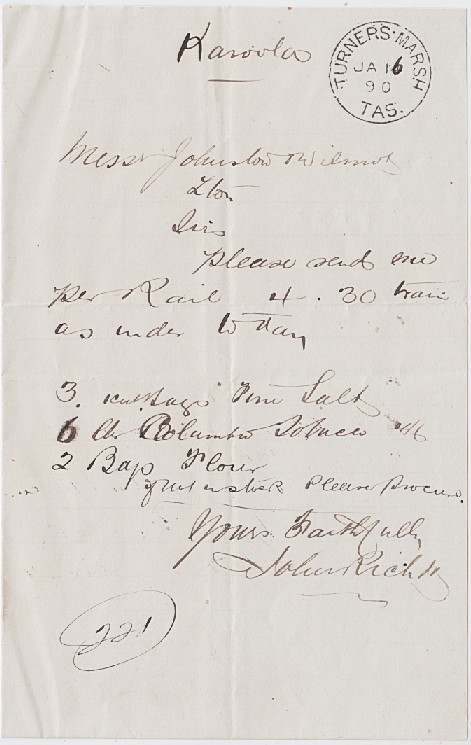 Karoola
TURNERS MARSH
JA 16
90
TAS.
Messr Johnston & Wilmot
Lton
Sirs
Please send me
per Rail 4.30 train
as under to day
3. Bags Fine Salt
6 lbs Columbia Tobacco
2 Bags Flour
Please Procure.
Yours Faithfully
John
221